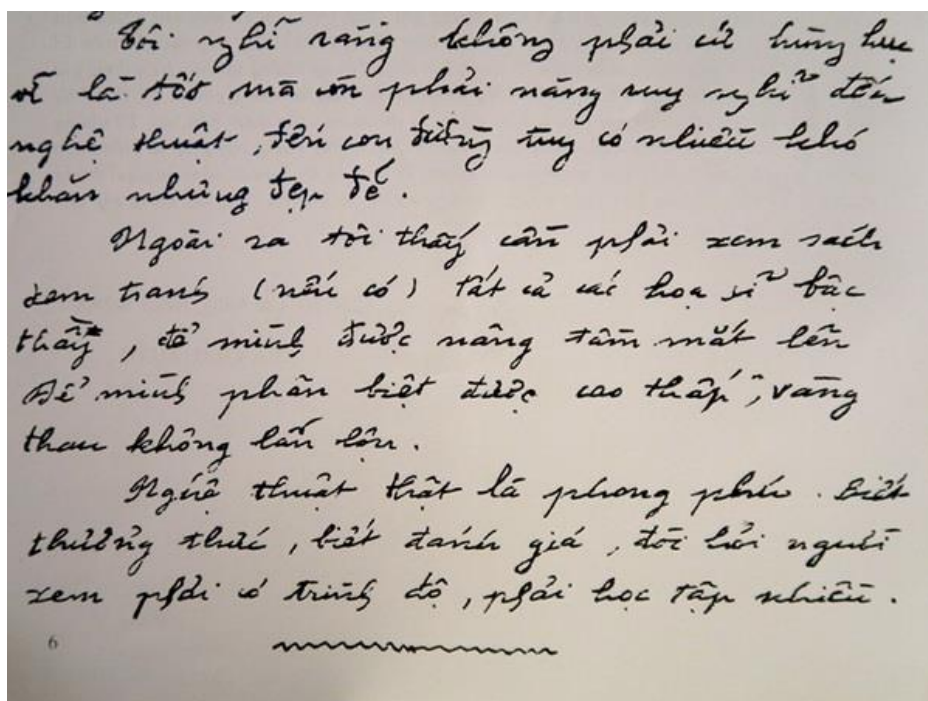 Tôi nghĩ rằng không phải cứ hùng hục
vẽ là tốt mà còn phải năng suy nghĩ đến
nghệ thuật, đến con đường tuy có nhiều khó
khăn nhưng đẹp đẽ.
Ngoài ra tôi thấy cần phải xem sách
xem tranh (nếu có) tất cả các họa sĩ bậc
thầy, để mình được nâng tầm mắt lên
Để mình phân biệt được cao thấp, vàng
thau không lẫn lộn.
Nghệ thuật thật là phong phú. Biết
thưởng thức, biết đánh giá, đòi hỏi người
xem phải có trình độ, phải học tập nhiều.
6